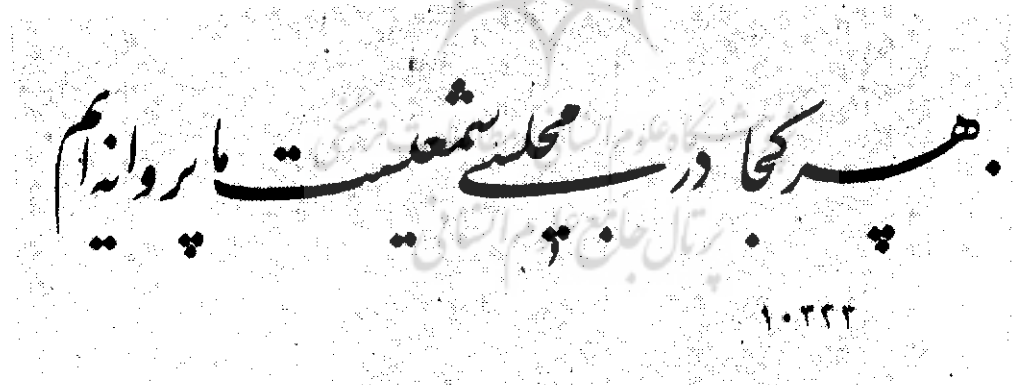 بهر کجا در مجلسی شمعیست ما پروانه ایم
پژوهشگاه علوم انسانی و مطالعات فرهنگی
پرتال جامع علوم انسانی
۱۰۳۳۳